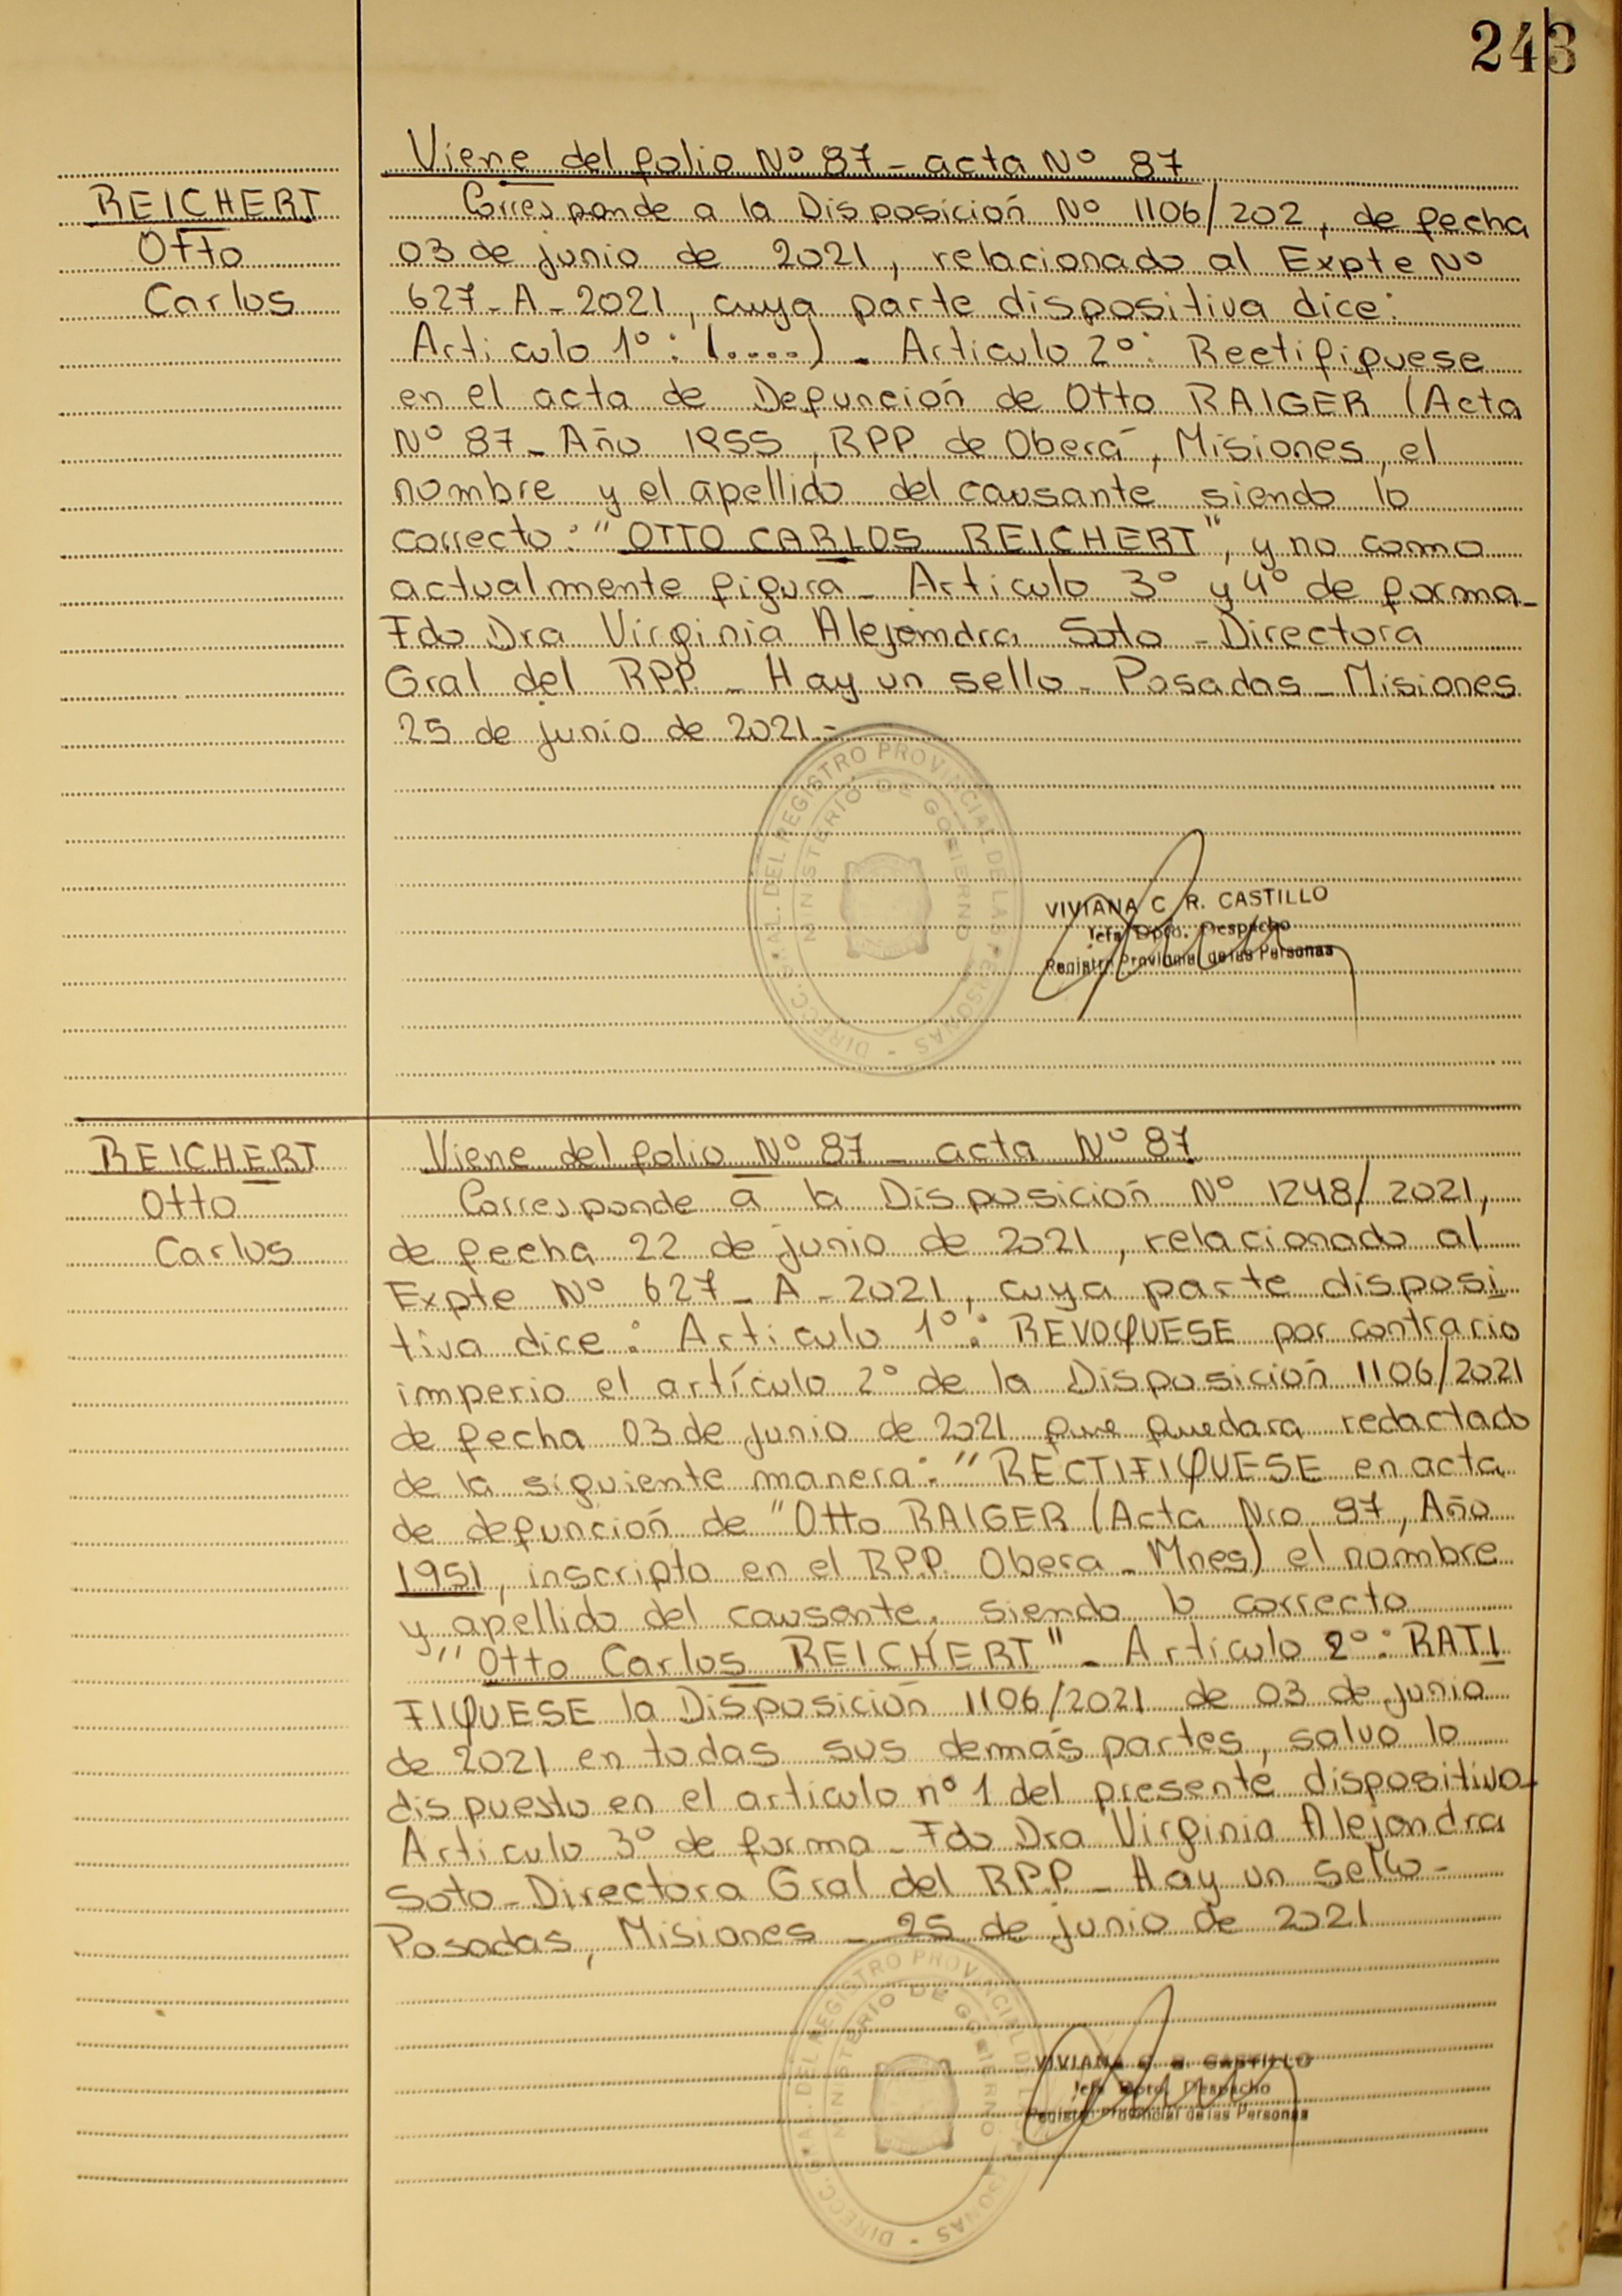 243
Viene del folio Nº 87 - acta Nº 87
REICHERT
Otto
Carlos
Corresponde a la Disposición Nº 1106/202, de fecha
03 de junio de 2021, relacionado al Expte Nº
627-A-2021, cuya parte dispositiva dice:
Articulo 1º: (.....) - Articulo 2º: Rectifiquese
en el acta de Defunción de Otto RAIGER (Acta
Nº 87 - Año 1955, RPP. de Oberá, Misiones, el
nombre y el apellido del causante siendo lo
correcto: "OTTO CARLOS REICHERT", y no como
actualmente figura - Articulo 3º y 4º de forma -
Fdo Dra Virginia Alejandra Soto - Directora
Gral del RPP. - Hay un sello - Posadas - Misiones
25 de junio de 2021 -
DIRECC. GRAL. DEL REGISTRO PROVINCIAL DE LAS PERSONAS -
MINISTERIO DE GOBIERNO
VIVIANA C. R. CASTILLO
Jefa Dpto. Despacho
Registro Provincial de las Personas
Viene del folio Nº 87 - acta Nº 87
REICHERT
Otto
Carlos
Corresponde a la Disposición Nº 1248/2021,
de fecha 22 de junio de 2021, relacionado al
Expte Nº 627 - A - 2021, cuya parte disposi
tiva dice: Articulo 1º: REVOQUESE por contrario
imperio el artículo 2º de la Disposición 1106/2021
de fecha 03 de junio de 2021 que quedara redactado
de la siguiente manera: "RECTIFIQUESE en acta
de defunción de "Otto RAIGER (Acta Nro 87, Año
1951, inscripto en el R.P.P. Obera - Mnes) el nombre
y apellido del causante, siendo lo correcto
"Otto Carlos REICHERT" - Articulo 2º: RATI
FIQUESE la Disposición 1106/2021 de 03 de junio
de 2021 en todas sus demás partes, salvo lo
dispuesto en el articulo nº 1 del presente dispositivo -
Articulo 3º de forma - Fdo Dra Virginia Alejandra
Soto - Directora Gral del R.P.P. - Hay un sello -
Posadas, Misiones - 25 de junio de 2021
DIRECC. GRAL. DEL REGISTRO PROVINCIAL DE LAS PERSONAS -
MINISTERIO DE GOBIERNO
VIVIANA C. R. CASTILLO
Jefa Dpto. Despacho
Registro Provincial de las Personas